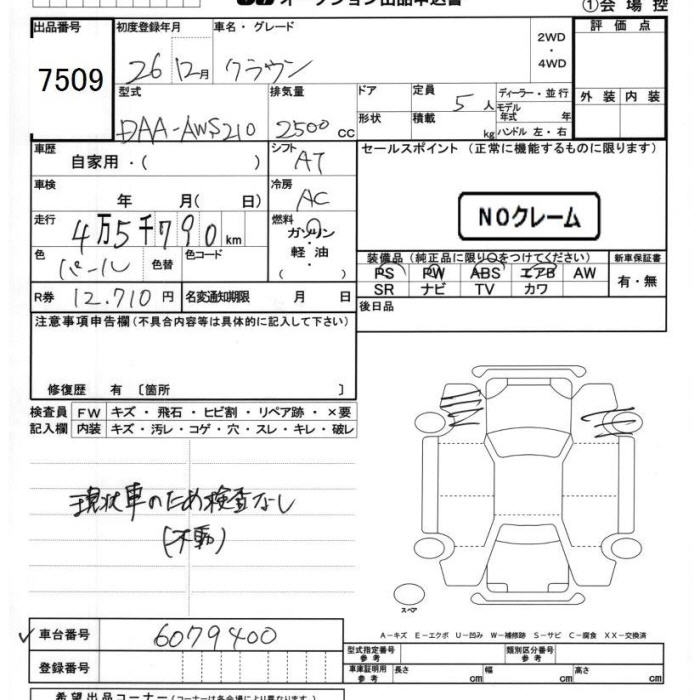 ①会場控
出品番号 初度登録年月 車名・グレード 評価点
7509 26 12月 クラウン 2WD・4WD
外装 内装
型式 排気量 ドア 定員 ディーラー・並行
DAA-AWS210 2500cc 5人 モデル年式 年
形状 積載 kg ハンドル 左・右
車歴 シフト セールスポイント (正常に機能するものに限ります)
自家用・( ) AT
車検 冷房
年 月( 日) AC
NOクレーム
走行 燃料
4万5千790km ガソリン・軽油・( )
色 色替 色コード
パール
装備品 (純正品に限り○をつけてください) 新車保証書
PS PW ABS エアB AW 有・無
SR ナビ TV カワ
R券 12.710円 名変通知期限 月 日 後日品
注意事項申告欄(不具合内容等は具体的に記入して下さい)
修復歴 有 〔箇所 〕
検査員 FW キズ・飛石・ヒビ割・リペア跡・×要
記入欄 内装 キズ・汚レ・コゲ・穴・スレ・キレ・破レ
現状車のため検査なし
(不動)
スペア
✓ 車台番号 6079400
A−キズ E−エクボ U−凹み W−補修跡 S−サビ C−腐食 XX−交換済
登録番号
型式指定番号 参考 類別区分番号 参考
車庫証明用 参考 長さ cm 幅 cm 高さ cm
希望出品コーナー(コーナーは各会場により異なります)